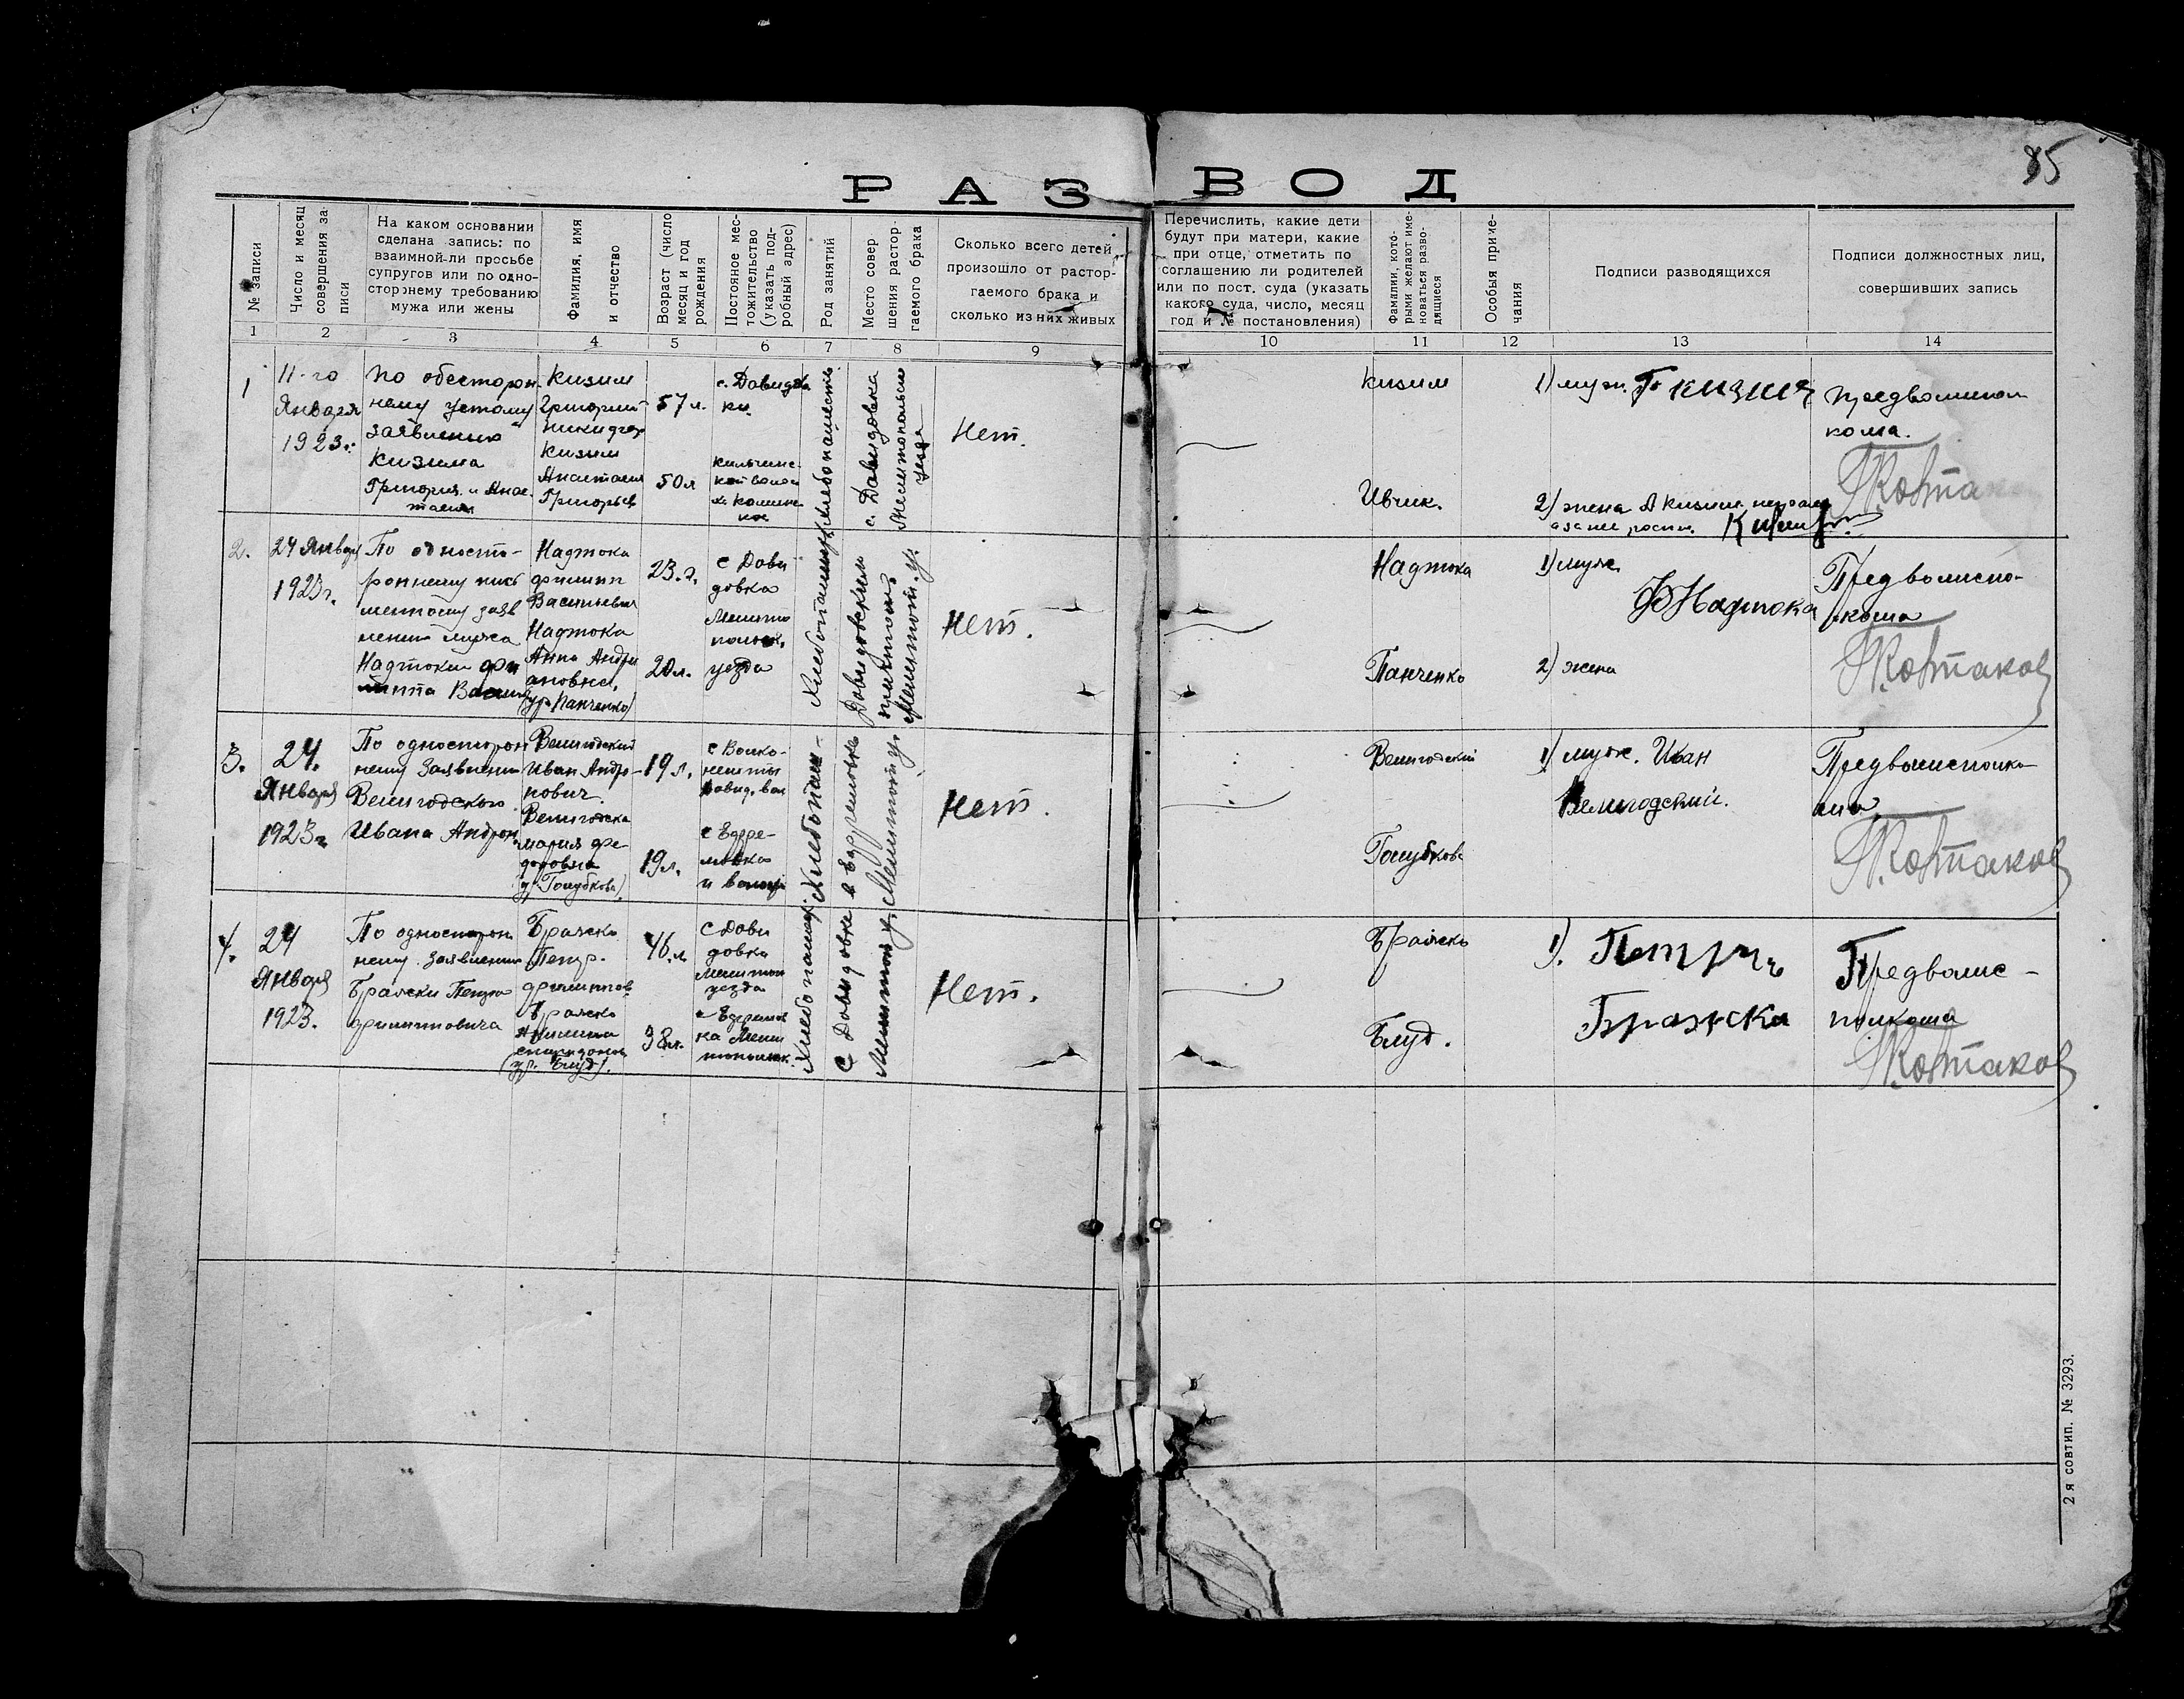 85
РАЗВОД
№ записи
Число и месяц совершения записи
На каком основании
сделана запись: по
взаимной-ли просьбе
супругов или по одно-
сторэнему требованию
мужа или жены
Фамилия, имя
и отчество
Возраст (число
месяц и год
рождения
Постоянное мес-
тожительство
(указать под-
робный адрес)
Род занятий
Место совер
шения растор-
гаемого брака
Сколько всего детей
произошло от растор-
гаемого брака и
сколько из них живых
Перечислить, какие дети
будут при матери, какие
при отце, отметить по
соглашению ли родителей
или по пост. суда (указать
какого суда, число, месяц
год и № постановления)
Фамилии, кото-
рыми желают име-
новаться разво-
дящиеся
Особыя приме-
чания
Подписи разводящихся
Подписи должностных лиц,
совершивших запись
1 2 3 4 5 6 7 8 9 10 11 12 13 14
1
11-го
Января
1923г.
по обесторон-
нему устому
заявлению
Кизима
Григория и Анас
тасии
Кизим
Григорий
Кизим
Анастасия
Григорьев
57 л.
50 л
с. Давидов
ка.
Хлебопашеств
с. Давидовка
Мелитопольск
уезда
Нет.
Кизим
Ивчик.
1) муж. Г Кизим
2) жена А Кизим
Предволисполкома.
2.
24 Января
1923г.
По односто-
роннему пись
менному заяв
лению мужа
Надтоки Фи
липпа Васил
Надтока
Филипп
Васильевич
Надтока
Анна Андри
ановна,
(ур Панченко)
23.г.
20л.
с Дави
довка
Мелито
польск.
уезда
Хлебопашец
Давидовским
причтом
Мелитоп. у.
Нет.
Надтока
Панченко
1) муж
Ф Надтока
2) жена
Предволиспо-
лкома
3.
24.
Января
1923г
По односторон
нему Заявлению
Велигодского
Ивана Андрон
Велигодский
Иван Андро-
нович.
Велигодска
Мария Фе-
доровна
(ур. Голубкова)
19 л.
19л.
с Волко-
нешты
Давид. вол
с Ефре-
мовка
Хлебопаш-
в Ефремовке
Мелитоп у.
Нет.
Велигодский
Голубкова
1) муж. Иван
Велигодский.
Предволисполко
ма
4.
24
Января
1923.
По односторон
нему заявлению
Бражски Петра
Филипповича
Бражско
Петр.
Филиппов
Бражско
Спиридонов
(ур. Блуд).
46.л.
38л.
с Дави
довка
Мелитоп
уезда
с Ефремов
ка Мели
топольск.
Хлебопашец
с Давидовка
Мелитоп у.
Нет.
Бражско
Блуд.
1). Петр
Бражска
Предволис-
полкома
2 я совтип. № 3293.